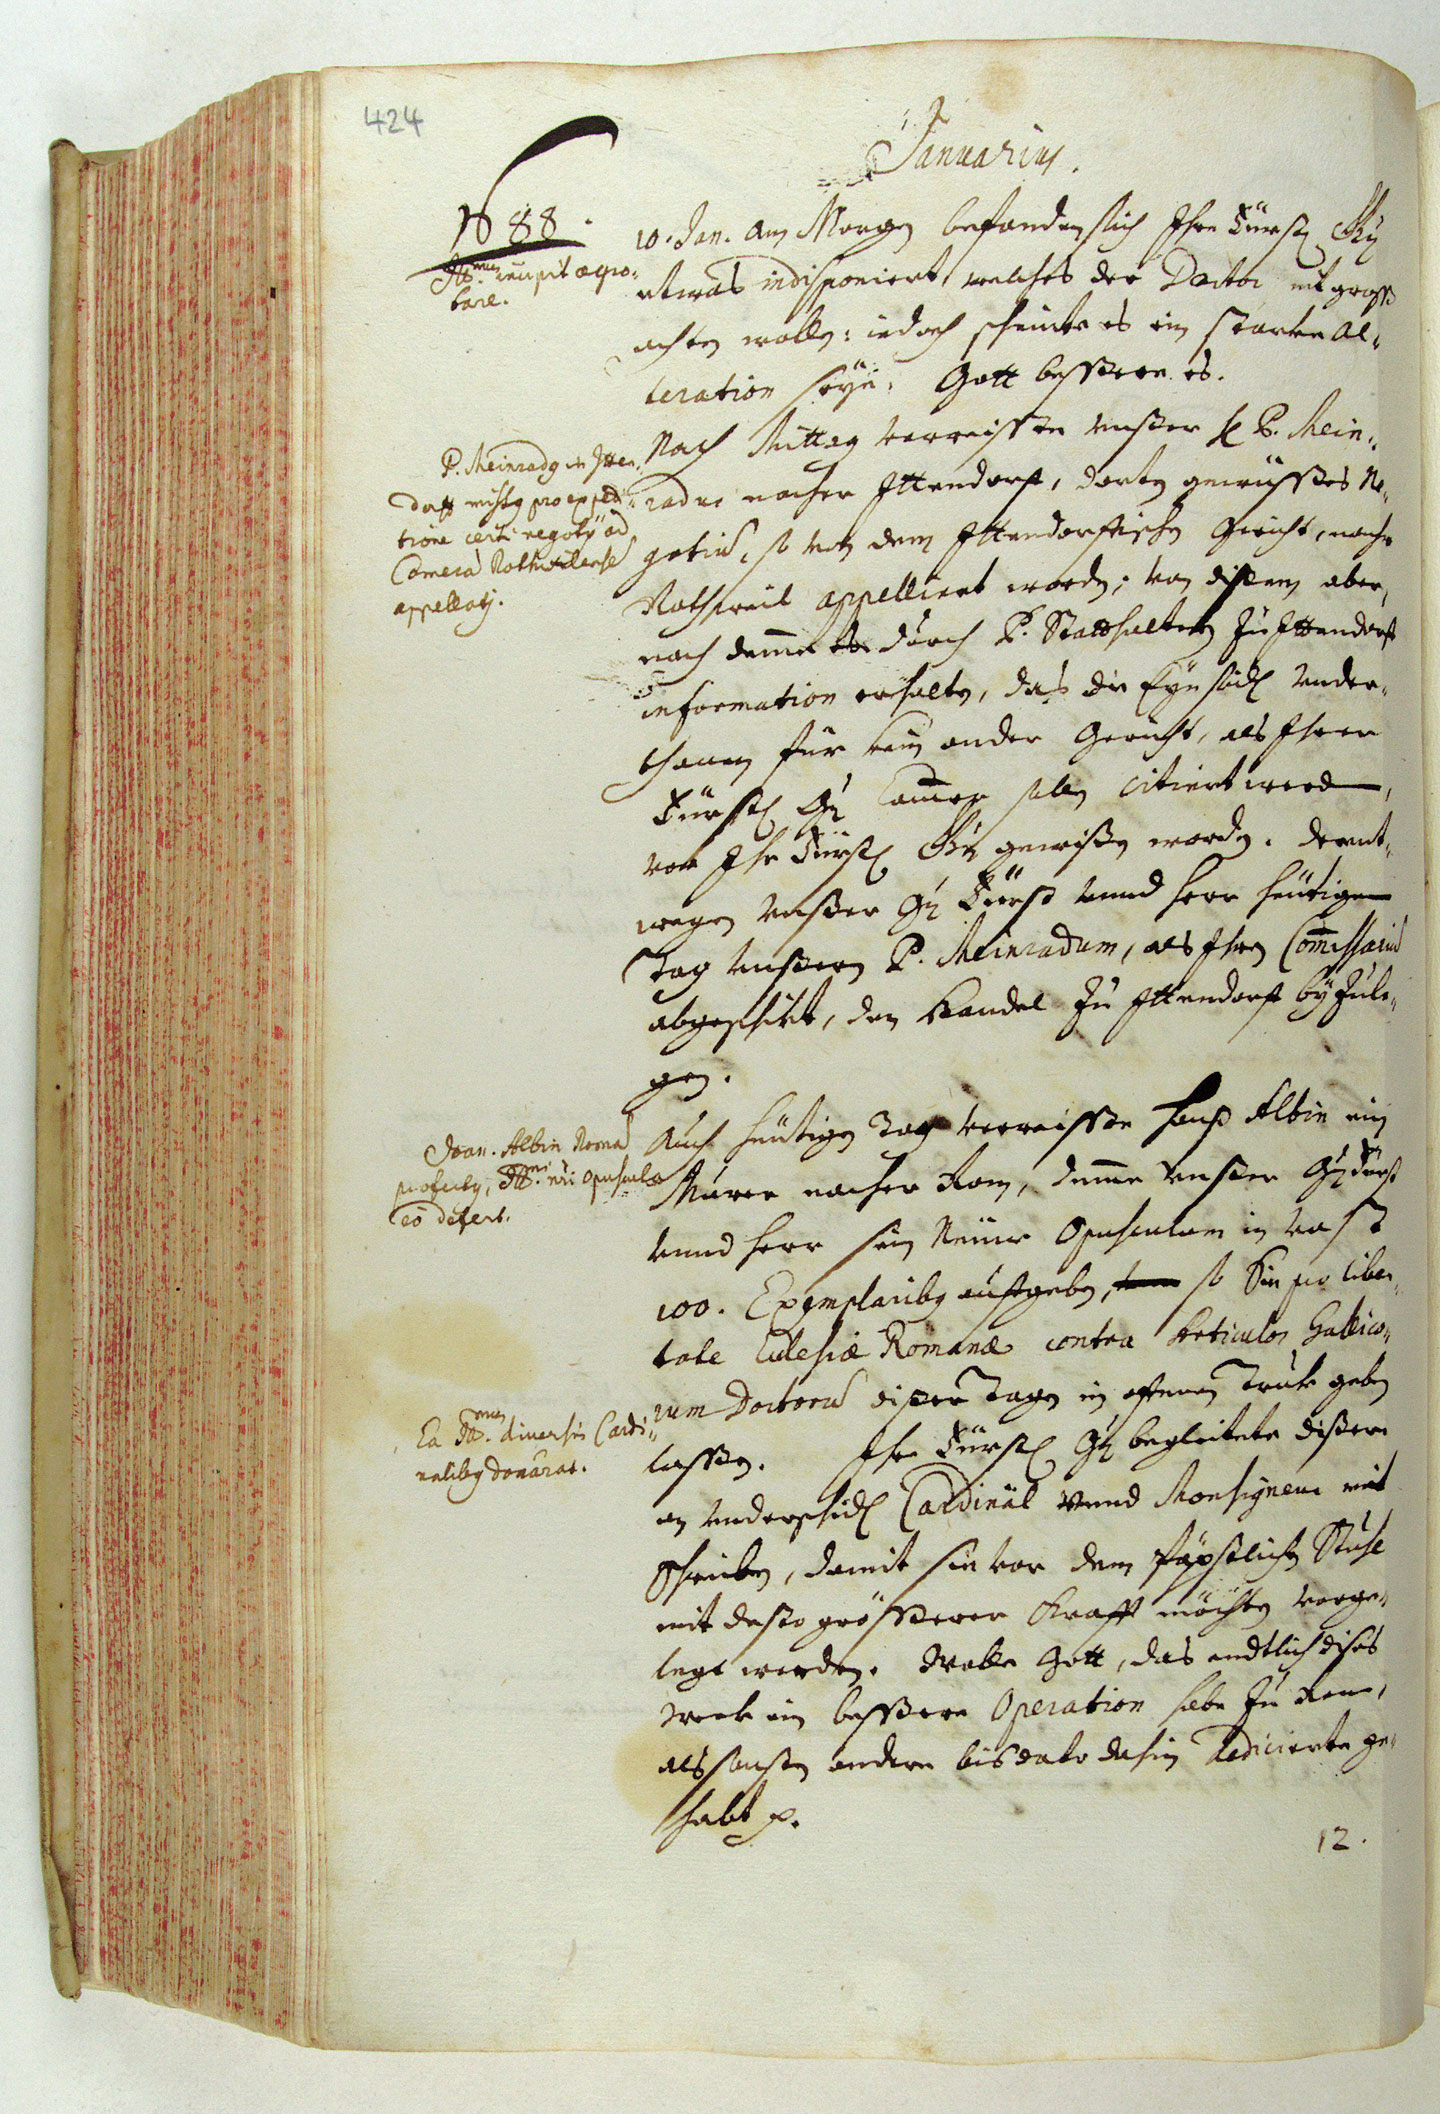 424
Januarius.
1688.
R.mus incipit aegro-
tare.
10. Jan. am Morgen befanden sich Ihre Fürstl. Gn.
etwas indisponiert, welches der Doctor nit gross
achten wolle: iedoch scheinte es ein starke Al-
teration seÿe. Gott bessere es.
P. Meinradus in Itten-
dorff mittitur pro expedi-
tione certi negotÿ ad
Cameram Rothwilensem
appellati.
Nach Mittag verreisste unsser P. Mein-
radus nacher Ittendorff, dorten gewüsses Ne-
gotium, so von dem Ittendorffischen Gericht, nacher
Rothweil appelliert worden; von dissem aber,
nach deme durch P. Statthaltern zu Ittendorff
information erhalten, das die Eÿnsidl. Under-
thanen für kein ander Gericht, als Ihrer
Fürstl. Gn. Cammer sollen citiert werden,
vor Ihr Fürstl. Gn. gewisen worden. Derent-
wegen unsser Gn. Fürst unnd Herr heütigen
Tag unssern P. Meinradum, als Ihren Commissarium
abgeschikt, den Handel zu Ittendorff bÿzule-
gen.
Joan. Albin Romam
profectus, R.mi nri opuscula
eò defert.
Auch heütigen Tag verreisste Hans Albin ein
Maurer nacher Rom, deme unsser Gn. Fürst
unnd Herr sein Neüwe Opusculum in vast
100. Exemplaribus auffgeben, so Sie pro liber-
tate Ecclesiæ Romanæ contra Articulos Gallico-
rum Doctorum disser Tagen in offenen Truk geben
lassen. Ihre Fürstl. Gn. begleitete dissere
Ea R.mus diversis Cardi-
nalibus donarat.
an underschidl. Cardinäl unnd Monsigneur mit
Schreiben, damit sie vor dem Päpstlichen Stuhl
mit desto grösserer Krafft möchten vorge-
legt werden. Wolle Gott, das endtlich dises
Werk ein bessere Operation habe zu Rom,
als sonsten andere bis dato dahin dedicierte ge-
habt p.
12.